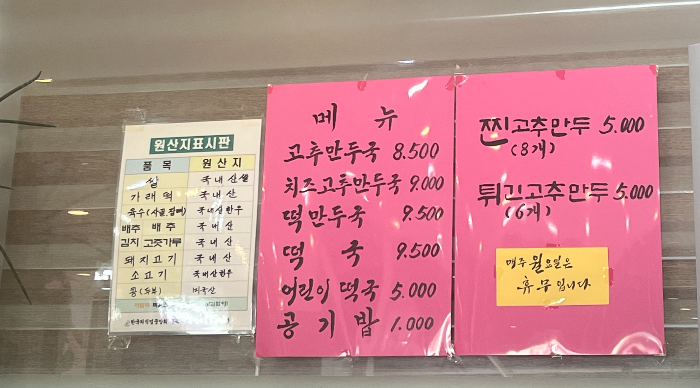 원산지표시판
품목 원산지
쌀 국내산쌀
가래떡 국내산
육수(사골,잡뼈) 국내산한우
배추 배추 국내산
김치 고춧가루 국내산
돼지고기 국내산
소고기 국내산한우
콩(두부) 미국산
메 뉴
고추만두국 8.500
치즈고추만두국 9.000
떡만두국 9.500
떡 국 9.500
어린이 떡국 5.000
공기밥 1.000
찐고추만두 5.000
(8개)
튀긴고추만두 5.000
(6개)
매주 월요일은
휴무입니다